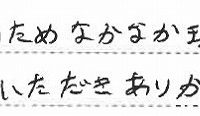 ためなかなか
いただきありが